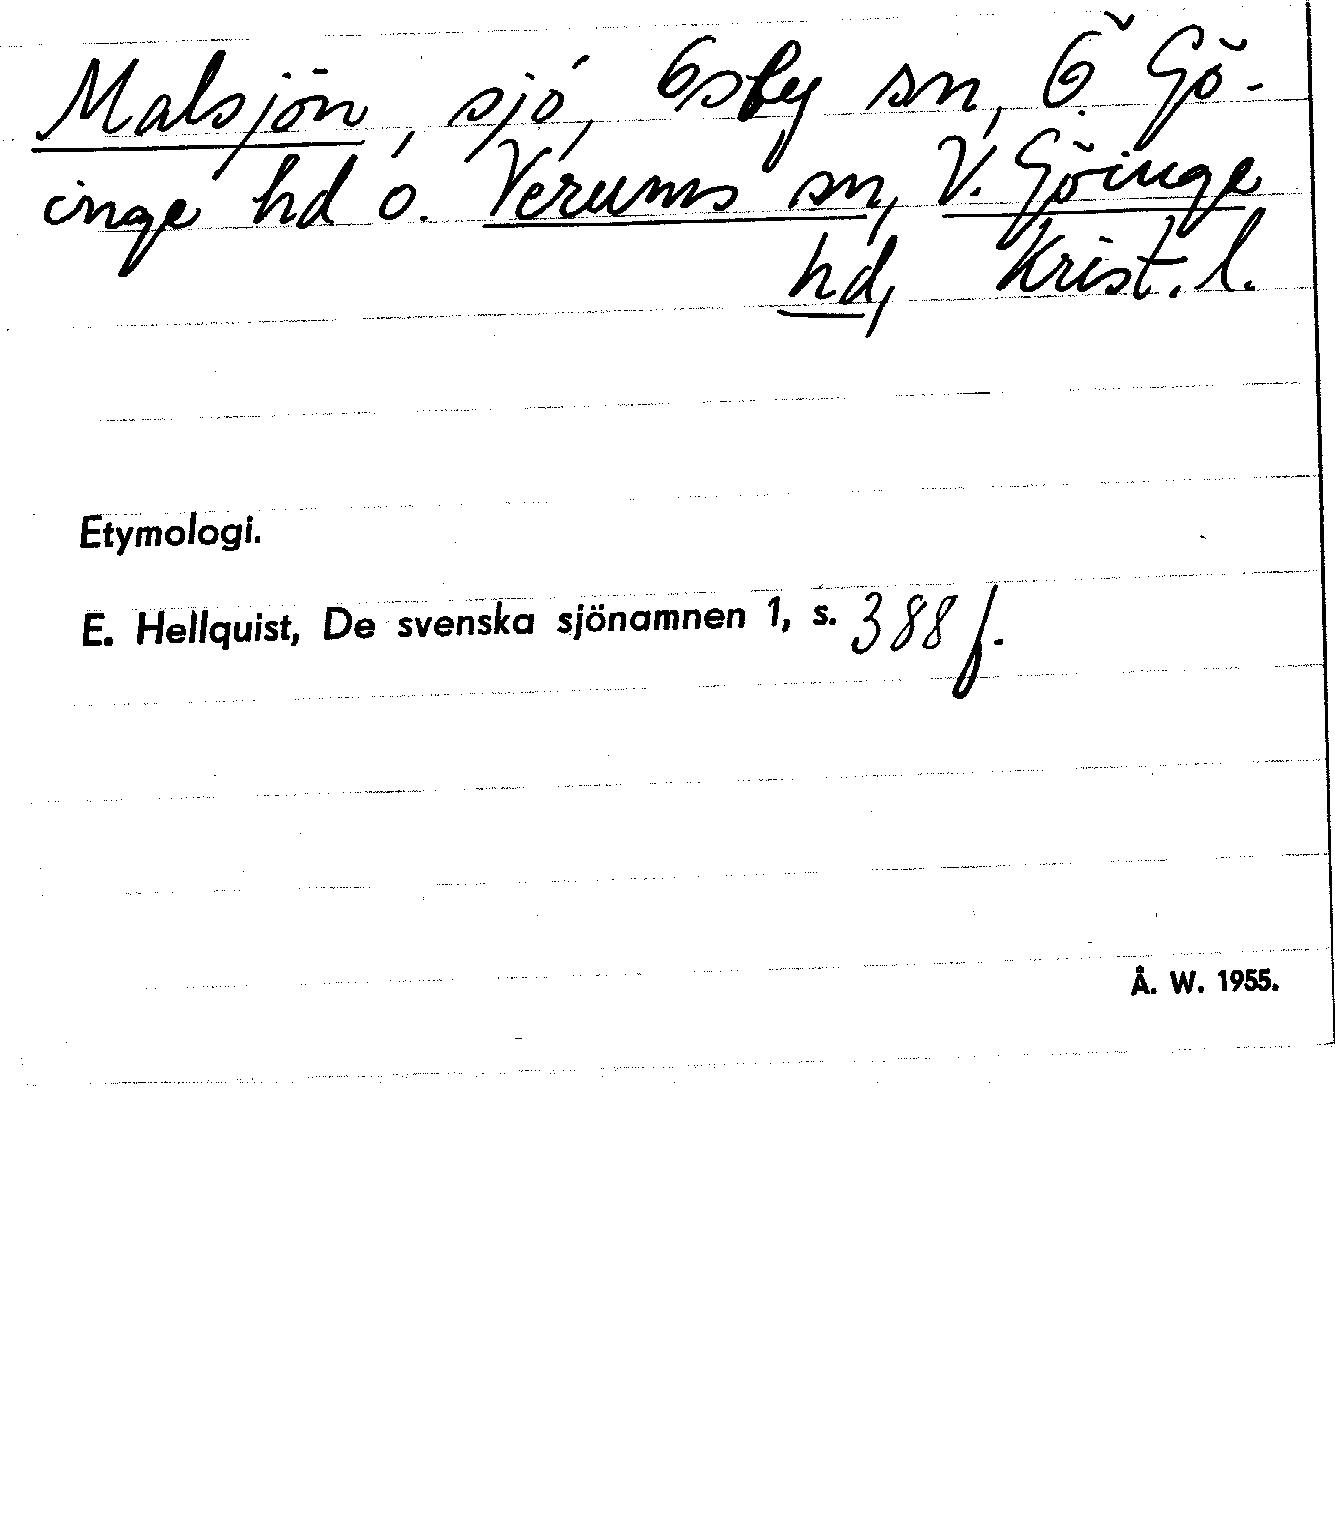 Malsjön, sjö, Osby sn, Ö. Gö-
inge hd o. Verums sn, V. Göinge
hd, Krist. l.
Etymologi.
E. Hellquist, De svenska sjönamnen 1, s. 388 f.
Å. W. 1955.